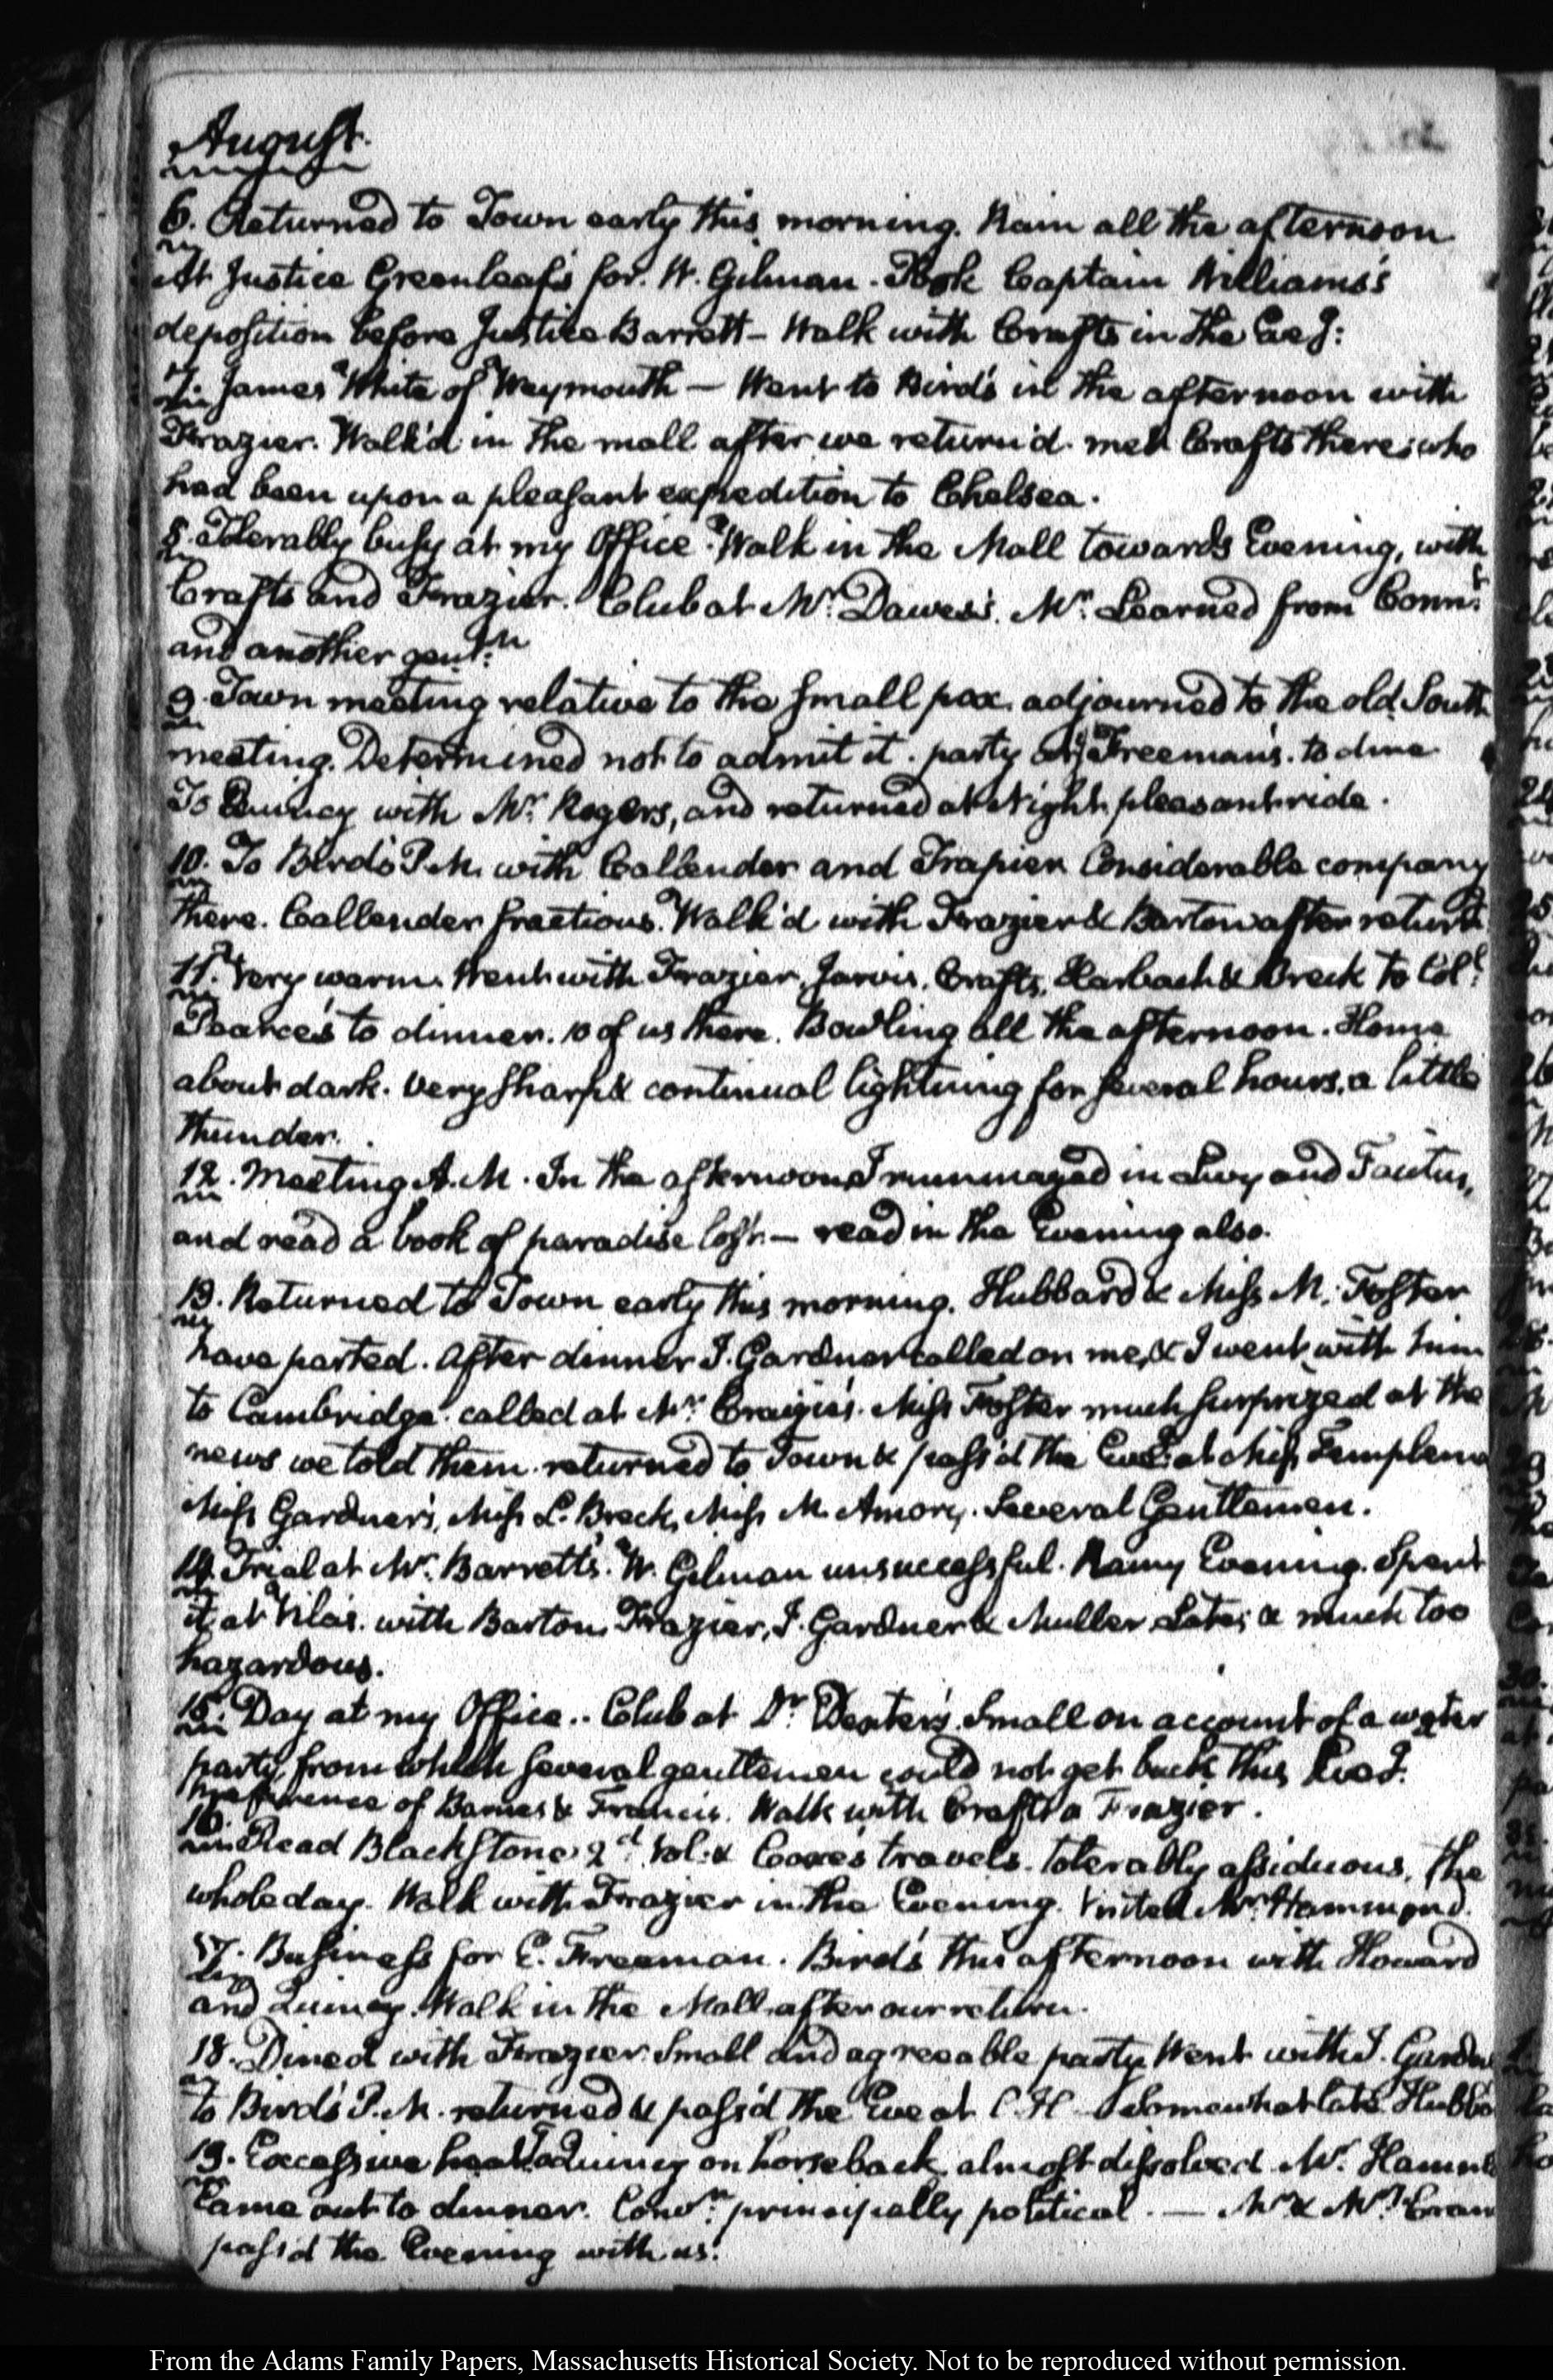 August.
6. Returned to Town early this morning. Rain all the afternoon
At Justice Greenleaf's for. W. Gilman. Took Captain Williams's
deposition before Justice Barrett - Walk with Crafts in the Eveg:
7. James White of Weymouth - Went to Bird's in the afternoon with
Frazier. Walk'd in the mall after we return'd. met Crafts there; who
had been upon a pleasant expedition to Chelsea.
8. Tolerably busy at my Office. Walk in the Mall towards Evening, with
Crafts and Frazier. Club at Mr. Dawes's. Mr. Learned from Connt:
and another gentn:
9. Town meeting relative to the small pox. adjourned to the old South
meeting. Determined not to admit it. party at Freeman's. to dine
To Quincy with Mr. Rogers, and returned at Night. pleasant ride.
10. To Bird's P.M. with Callender and Frazier Considerable company
there. Callender fractious. Walk'd with Frazier & Barton after return
11. Very warm. Went with Frazier, Jarvis, Crafts, Harbach & Breck to Coll:
Pearce's to dinner. 10 of us there. Bowling all the afternoon. Home
about dark. very sharp & continual lightning for several hours, a little
thunder.
12. Meeting A.M. In the afternoon I rummaged in Livy and Tacitus,
and read a book of paradise lost. - read in the Evening also.
13. Returned to Town early this morning. Hubbard & Miss M. Foster
have parted. After dinner J. Gardner called on me, & I went with him
to Cambridge. called at Mr. Craigie's. Miss Foster much surprized at the
news we told them. returned to Town & pass'd the Eve: at Miss Templeman
Miss Gardner's, Miss L. Breck, Miss M. Amory. Several Gentlemen.
14. Trial at Mr. Barrett's. W. Gilman unsuccessful. Rainy Evening. Spent
it at Vila's. with Barton, Frazier, J. Gardner & Muller Late; & much too
hazardous.
15. Day at my Office.. Club at Dr. Dexter's. Small on account of a water
party, from which several gentlemen could not get back this Eveg.
of Barnes & Francis. Walk with Crafts & Frazier.
16. Read Blackstone 2d. vol: & Coxe's travels. tolerably assiduous, the
whole day. Walk with Frazier in the Evening. Visited Mr. Hammond.
17. Business for E. Freeman. Bird's this afternoon with Howard
and Quincy. Walk in the Mall after our return.
18. Dined with Frazier. Small and agreeable party Went with J. Gardner
to Bird's P.M. returned & pass'd the Eve at C. H. Somewhat late Hubba
19. Excessive heat. To Quincy on horseback. almost dissolved. Mr. Hammd
Came out to dinner. Convn: principally political. - Mr. & Mrs. Cran
pass'd the Evening with us.
From the Adams Family Papers, Massachusetts Historical Society. Not to be reproduced without permission.